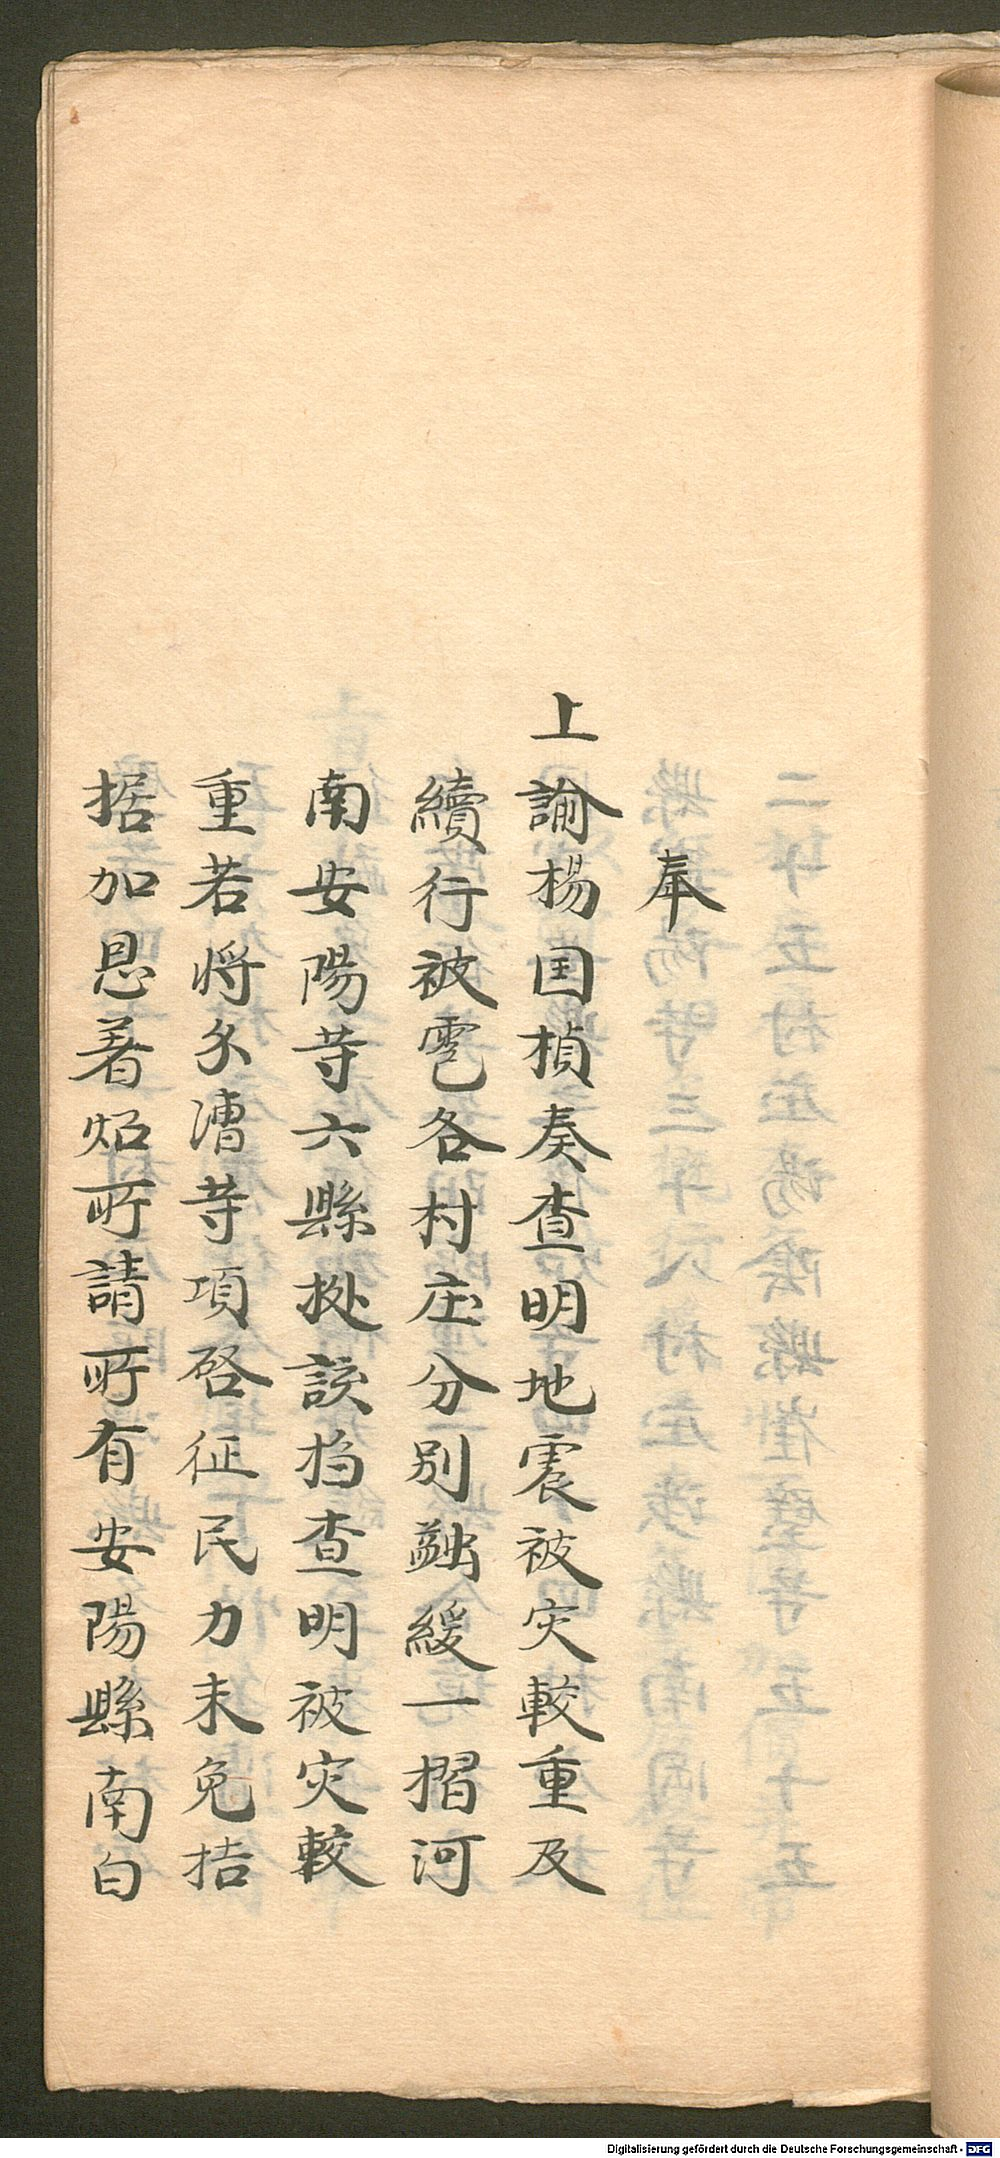 奉
上諭楊国楨奏查明地震被灾較重及
續行被雹各村庄分別蠲緩一摺河
南安陽䓁六縣㨿該撫查明被灾較
重若将氽漕䓁項啓征民力未免拮
据加恩着炤所請所有安陽縣南白
Digitalisierung gefördert durch die Deutsche Forschungsgemeinschaft - DFG